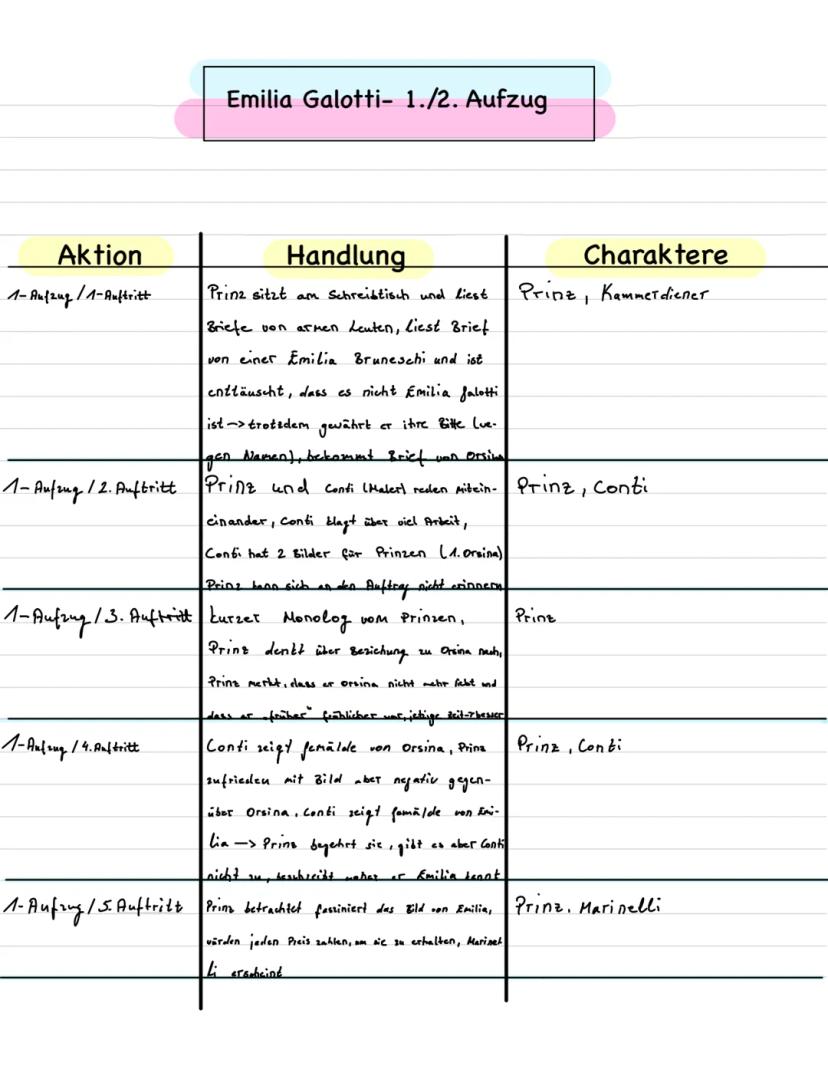 Emilia Galotti- 1./2. Aufzug
Aktion
Handlung
Charaktere
1-Aufzug/1-Auftritt
Prinz sitzt am Schreibtisch und liest
Briefe von armen Leuten, liest Brief
von einer Emilia Bruneschi und ist
enttäuscht, dass es nicht Emilia Galotti
ist -> trotzdem gewährt er ihre Bitte (we-
gen Namen), bekommt Brief von Orsina
Prinz, Kammerdiener
1-Aufzug/2. Auftritt
Prinz und Conti (Maler) reden mitein-
einander, Conti klagt über viel Arbeit,
Conti hat 2 Bilder für Prinzen (1. Orsina)
Prinz kann sich an den Auftrag nicht erinnern
Prinz, Conti
1-Aufzug/3. Auftritt
kurzer Monolog vom Prinzen,
Prinz denkt über Beziehung zu Orsina nach,
Prinz merkt, dass er Orsina nicht mehr liebt und
dass er "früher" fröhlicher war, jetzige Zeit->besser
Prinz
1-Aufzug/4. Auftritt
Conti zeigt Gemälde von Orsina, Prinz
zufrieden mit Bild aber negativ gegen-
über Orsina, Conti zeigt Gemälde von Emi-
lia -> Prinz begehrt sie, gibt es aber Conti
nicht zu, beschreibt woher er Emilia kennt
Prinz, Conti
1-Aufzug/5. Auftritt
Prinz betrachtet fasziniert das Bild von Emilia,
würden jeden Preis zahlen, um sie zu erhalten, Marinel
li erscheint
Prinz, Marinelli